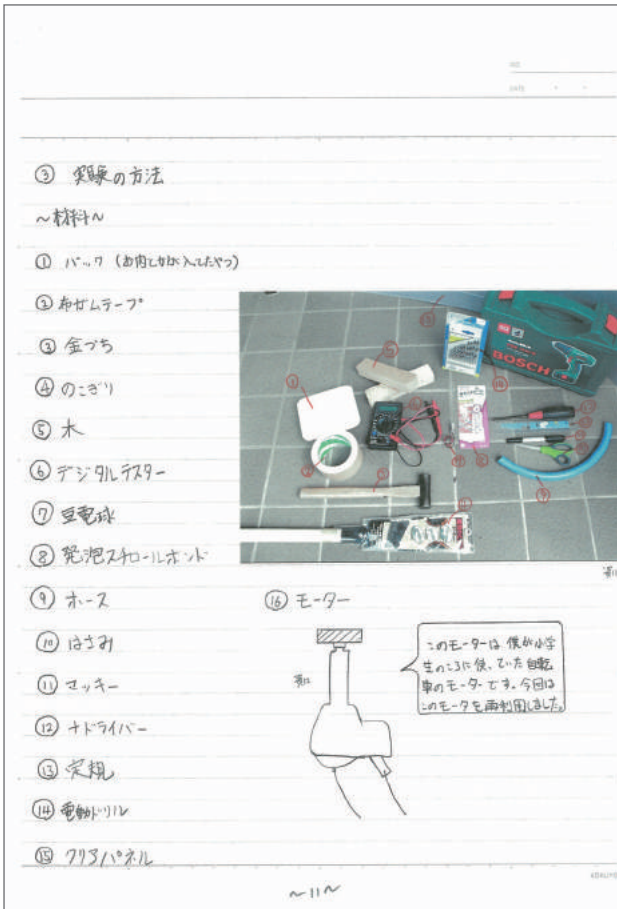 NO.
DATE
③ 実験の方法
~材料~
① パック (お肉とかが入ってたやつ)
② 布ガムテープ
③ 金づち
④ のこぎり
⑤ 木
⑥ デジタルテスター
⑦ 豆電球
⑧ 発泡スチロールボンド
⑨ ホース
⑩ はさみ
⑪ マッキー
⑫ +ドライバー
⑬ 定規
⑭ 電動ドリル
⑮ クリアパネル
BOSCH
⑯ モーター
このモーターは僕が小学
生のころに使っていた自転
車のモーターです。今回は
このモータを再利用しました。
KOKUYO
~11~